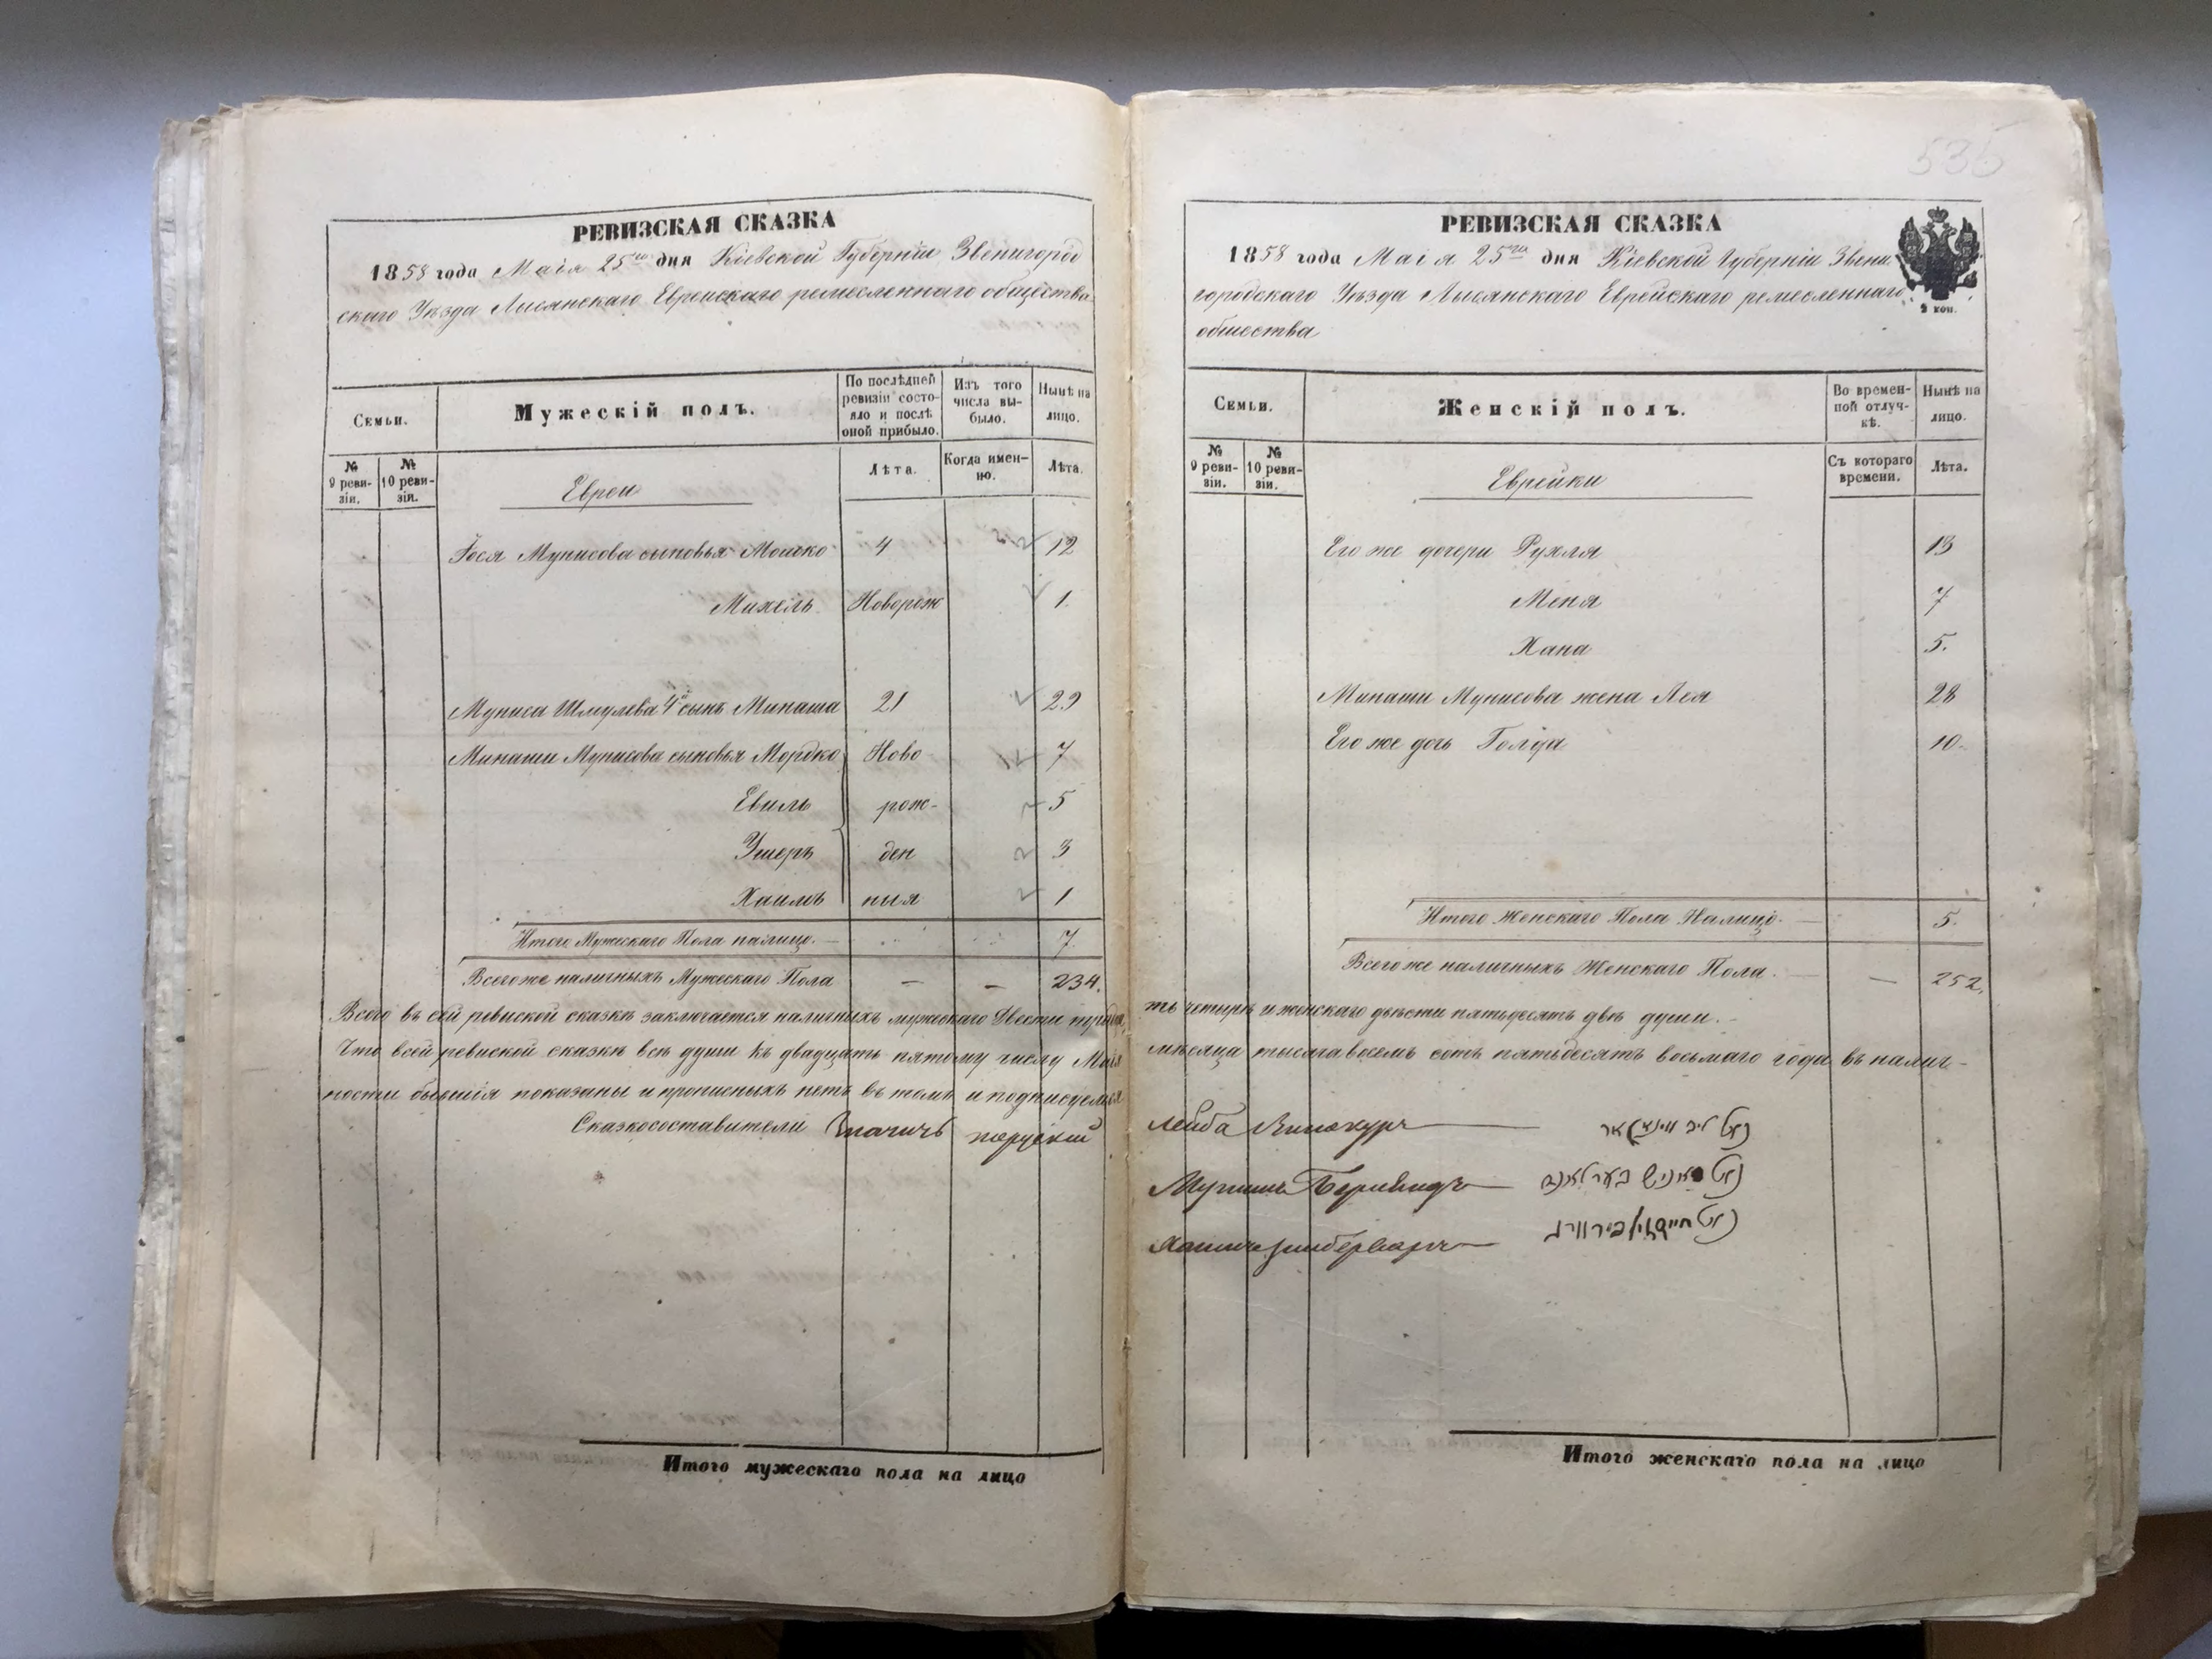 РЕВИЗСКАЯ СКАЗКА
1858 года Маія 25го дня Кіевской Губерніи Звенигород
скаго Уѣзда Лысянскаго Еврейскаго ремесленнаго общества
Семьи.
Мужескій полъ.
По послѣдней ревизіи состояло и послѣ оной прибыло.
Изъ того числа выбыло.
Нынѣ на лицо.
№ 9 ревизіи.
№ 10 ревизіи.
Евреи
Лѣта.
Когда именно.
Лѣта.
Іося Мунисова сыновья Мошко 4 12
Михель Новорож 1.
Муниса Шмулева 4й сынъ Минаша 21 29
Минаши Мунисова сыновья Мордко Ново 7
Евиль рож- 5
Ушеръ ден 3
Хаимъ ныя 1
Итого Мужескаго Пола налицо. 7
Всего же наличныхъ Мужескаго Пола — — 234.
Всего въ сей ревиской сказкѣ заключается наличныхъ мужескаго Двести тридца
Что всей ревиской сказкѣ всѣ души къ двадцать пятому числу Маія
ности бывшія показаны и прописныхъ нетъ въ томъ и подписуемся
Сказкосоставители
Итого мужескаго пола на лицо
535
РЕВИЗСКАЯ СКАЗКА
1858 года Маія 25го дня Кіевской Губерніи Звени
городскаго Уѣзда Лысянскаго Еврейскаго ремесленнаго
общества
2 коп.
Семьи.
Женскій полъ.
Во временной отлучкѣ.
Нынѣ на лицо.
№ 9 ревизіи.
№ 10 ревизіи.
Еврейки
Съ котораго времени.
Лѣта.
Его же дочери Рухля 13
Меня 7
Хана 5.
Минаши Мунисова жена Лея 28
Его же дочь Голда 10.
Итого Женскаго Пола Налицо. — 5.
Всего же наличныхъ Женскаго Пола. — — 252.
ть четыре и женскаго двѣсти пятьдесятъ двѣ души.
мѣсяца тысяча восемь сотъ пятьдесятъ восьмаго года въ налич-
Лейба Винокуръ
Мунишъ
Итого женскаго пола на лицо